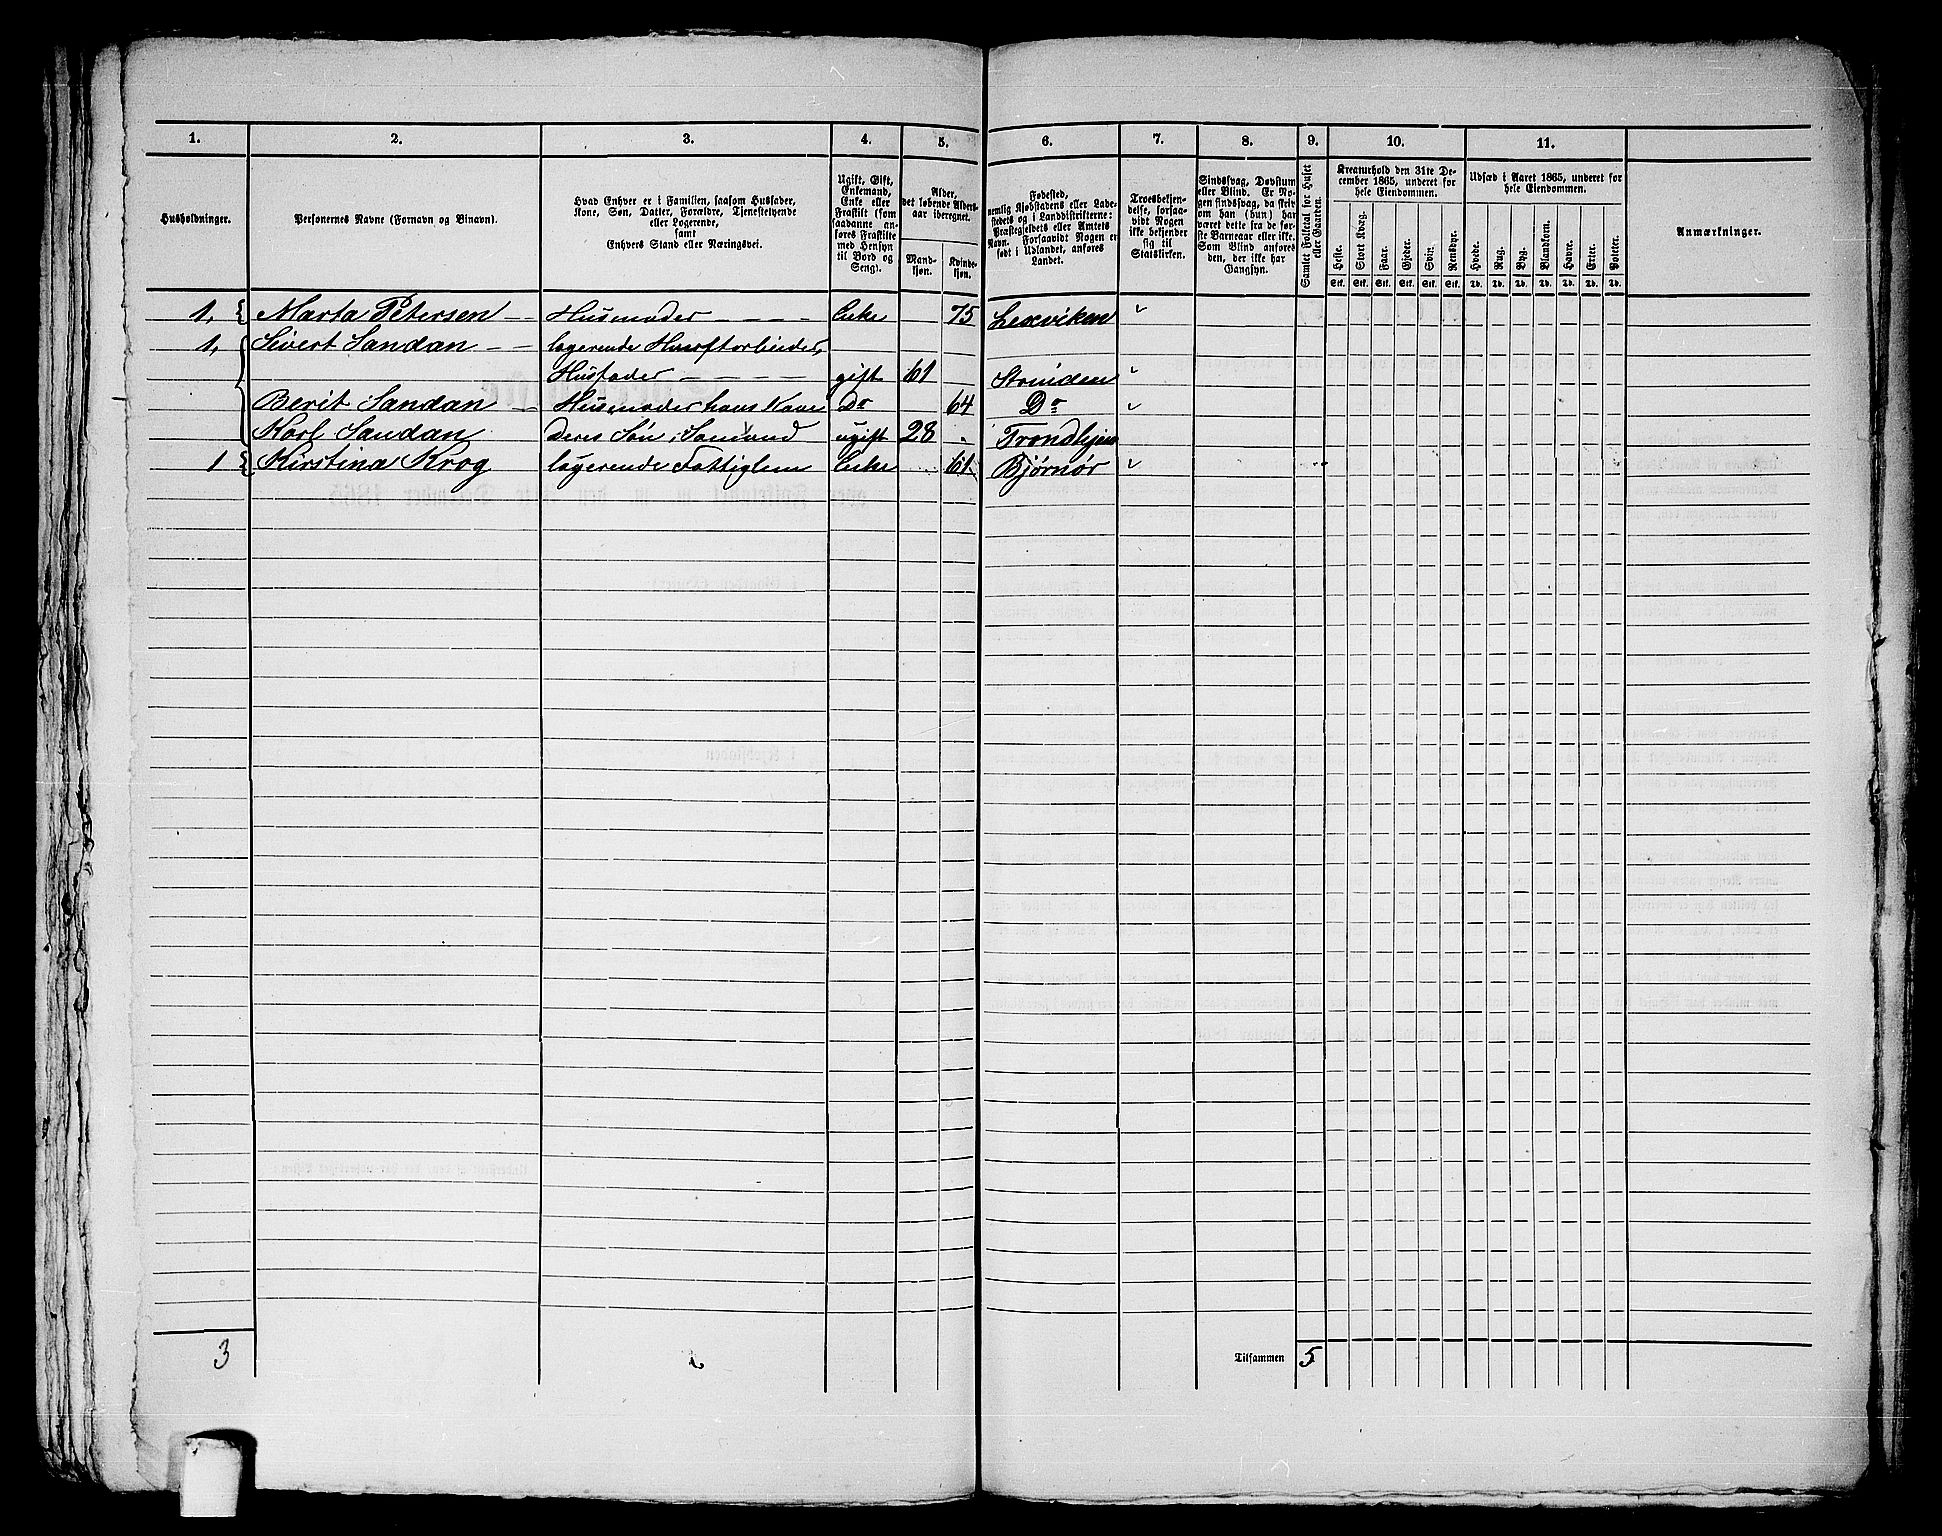 1. 2. 3. 4. 5. 6. 7. 8. 9. 10. 11.
Husholdninger.
Personernes Navne (Fornavn og Binavn).
Hvad Enhver er i Familien, saasom Husfader,
Kone, Søn, Datter, Forældre, Tjenestetyende
eller Logerende,
samt
Enhvers Stand eller Næringsvei.
Ugift, Gift,
Enkemand,
Enke eller
Fraskilt (som
saadanne an-
føres Fraskilte
med Hensyn
til Bord og
Seng).
Alder,
det løbende Alders-
aar iberegnet.
Mand-
kjøn.
Kvinde-
kjøn.
Fødested,
nemlig Kjøbstadens eller Lade-
stedets og i Landdistrikterne:
Præstegjeldets eller Amtets
Navn. Forsaavidt Nogen er
født i Udlandet, anføres
Landet.
Troesbekjen-
delse, forsaa-
vidt Nogen
ikke bekjender
sig til
Statskirken.
Sindssvag, Døvstum
eller Blind. Er No-
gen sindssvag, da skriv
om han (hun) har
været dette fra de før-
ste Barneaar eller ikke.
Som Blind anføres
den, der ikke har
Gangsyn.
Samlet Folketal for Huset
eller Gaarden.
Kreaturhold den 31te De-
cember 1865, underet for
hele Eiendommen.
Heste. Stort Kvæg. Faar. Gjeder. Svin. Rensdyr.
Stk. Stk. Stk. Stk. Stk. Stk.
Udsæd i Aaret 1865, underet for
hele Eiendommen.
Hvede. Rug. Byg. Blandkorn. Havre. Erter. Poteter.
Td. Td. Td. Td. Td. Td. Td.
Anmærkninger.
1, Marta Petersen Husmoder Enke 75 Lexviken
1, Sivert Sandan logerende
Husfader gift 61 Strinden
Berit Sandan Husmoder hans Kone Do 64 Do
Karl Sandan Deres Søn, Sømand ugift 28 Trondhjem
1 Kirstina Krog logerende Fattiglem Enke 61 Bjørnør
3 Tilsammen 5